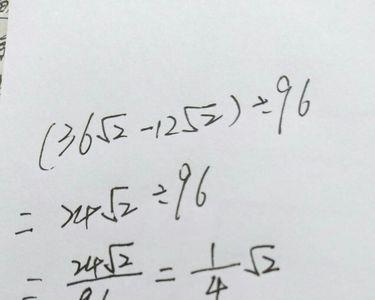 (36√2-12√2)÷96
= 24√2÷96
= 24√2/96 = 1/4 √2